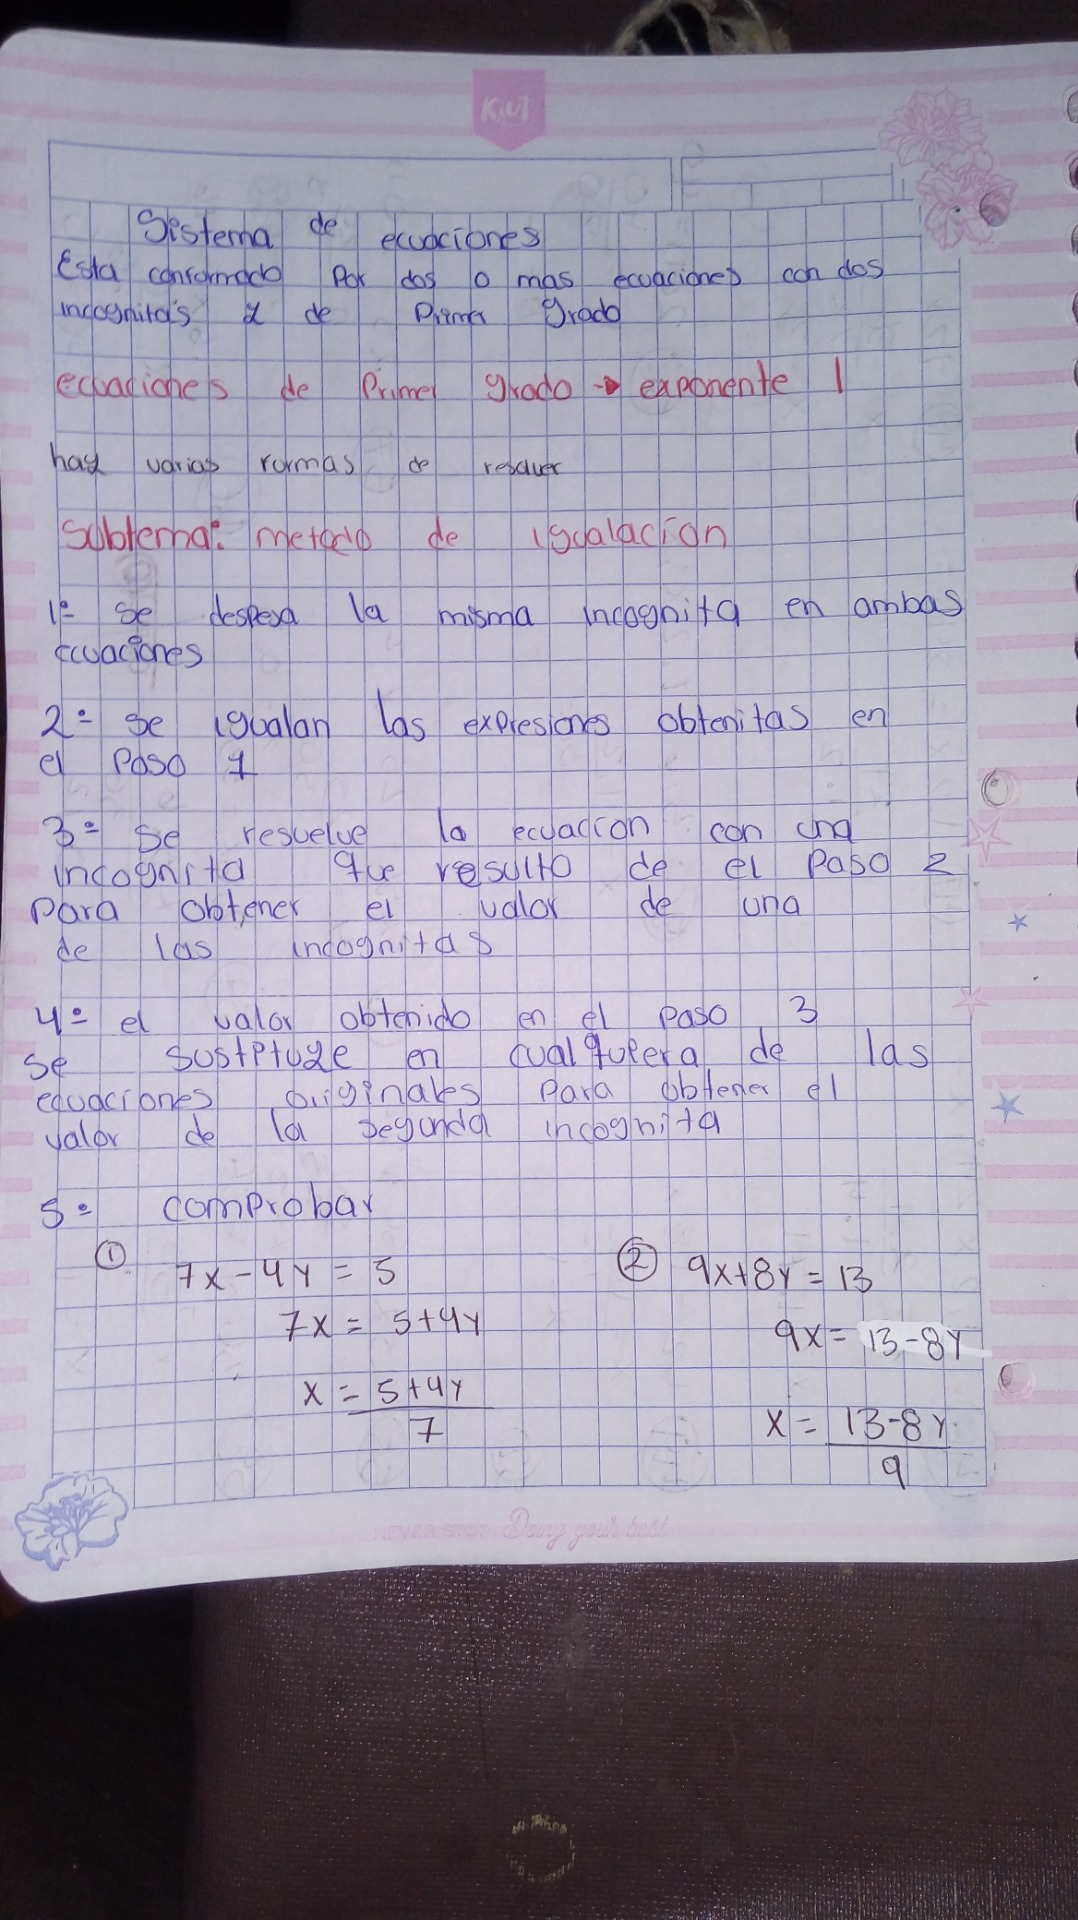 KIUT
Sistema de ecuaciones
Esta conformado Por dos o mas ecuaciones con dos
incognitas y de Primer grado
ecuaciones de Primer grado → exponente 1
hay varias formas de resolver
Subtema: metodo de igualacion
1º se despexa la misma incognita en ambas
ecuaciones
2º se igualan las expresiones obtenitas en
el Paso 1
3º se resuelve la ecuacion con una
incognita que resulto de el Paso 2
Para obtener el valor de una
de las incognitas
4º el valor obtenido en el Paso 3
se sustituye en cualquiera de las
ecuaciones originales Para obtener el
valor de la segunda incognita
5º comprobar
① 7x-4y=5 ② 9x+8y=13
7x=5+4y 9x=13-8y
x=5+4y x=13-8y
7 9
NEVER STOP Doing your best